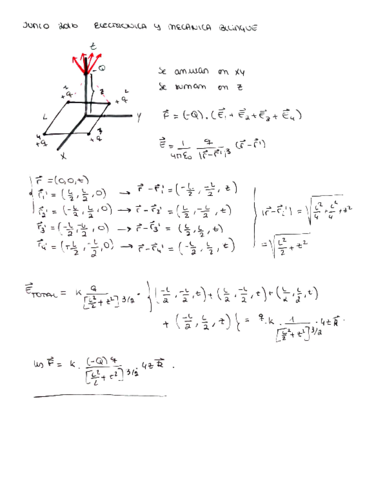 JUNIO 2016 ELECTRÓNICA Y MECÁNICA BILINGÜE
z
-Q
Se anulan en xy
Se suman en z
+q
+q
L
+q
L
+q
y
x
F⃗ = (-Q) · (E⃗₁ + E⃗₂ + E⃗₃ + E⃗₄)
E⃗ = 1/(4πε₀) q/|r⃗-r⃗'|³ (r⃗-r⃗')
r⃗ = (0,0,z)
r⃗₁' = (L/2, L/2, 0) → r⃗-r⃗₁' = (-L/2, -L/2, z)
r⃗₂' = (-L/2, L/2, 0) → r⃗-r⃗₂' = (L/2, -L/2, z)
r⃗₃' = (-L/2, -L/2, 0) → r⃗-r⃗₃' = (L/2, L/2, z)
r⃗₄' = (+L/2, -L/2, 0) → r⃗-r⃗₄' = (-L/2, L/2, z)
|r⃗-r⃗ᵢ'| = √(L²/4 + L²/4 + z²)
= √(L²/2 + z²)
E⃗TOTAL = k q/[L²/2 + z²]^3/2 · {(-L/2, -L/2, z) + (L/2, -L/2, z) + (L/2, L/2, z)
+ (-L/2, L/2, z)} = q·k · 1/[L²/2 + z²]^3/2 · 4z k⃗
F⃗ = k · (-Q) q/[L²/2 + z²]^3/2 · 4z k⃗.